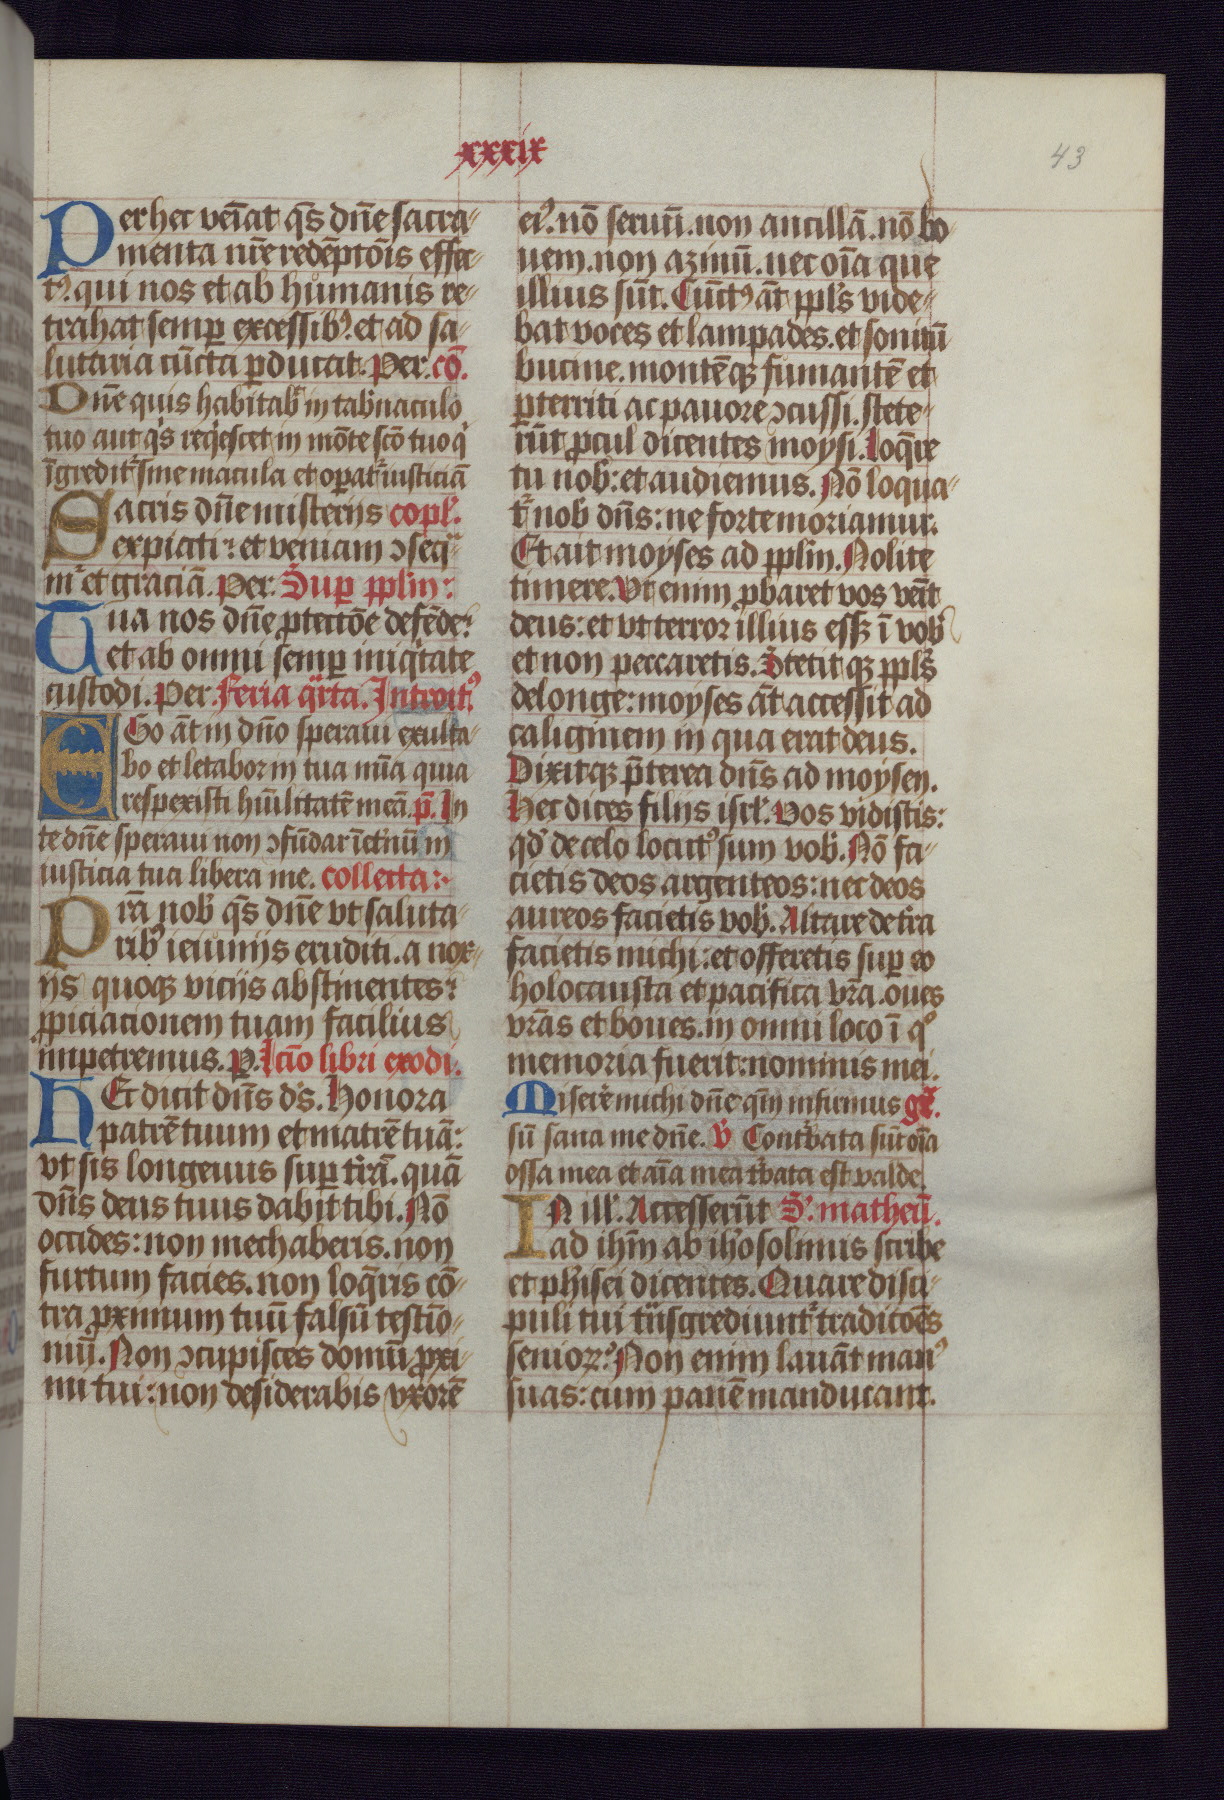 xxxix
43
Per hec veniāt q̄s dn̄e sacra-
menta nr̄e redēptōis effec-
tꝰ. qui nos et ab humanis re-
trahat semꝑ excessibꝰ. et ad sa-
lutaria cūcta ꝑducat. Per. cō.
Dn̄e quis habitab̄ in tab̄naculo
tuo aut q̄s reqͥescet in mōte sc̄o tuo qͥ
īgredit᷑ sine macula et oꝑat᷑ iusticiā
Sacris dn̄e misteriis copl̄.
expiati: et veniam ↄseqͣ-
m᷑ et graciā. Per. Suꝑ ppl̄m:
Tua nos dn̄e ꝓtectōe defēde:
et ab omni semꝑ iniqͥtate
custodi. Per. Feria qͣrta. Introitꝰ
EGo āt in dn̄o speraui exulta-
bo et letabor in tua mīa quia
respexisti hūilitatē meā. p̄. In
te dn̄e speraui non ↄfūdar īet᷑nū in
iusticia tua libera me. collecta:
Pr̄a nob̄ q̄s dn̄e vt saluta-
ribꝰ ieiuniis eruditi. a nox-
iis quoqꝫ viciis abstinentes:
ꝓpiciacionem tuam facilius
impetremus. P. lc̄io libri exodi.
Hec dicit dn̄s d̄s. Honora
patrē tuum et matrē tuā:
vt sis longeuus suꝑ t᷑rā. quā
dn̄s deus tuus dabit tibi. Nō
occides: non mechaberis. non
furtum facies. non loq̄ris cō-
tra ꝓximum tuū falsū testīo-
niū. Non ↄcupisces domū ꝓxi-
mi tui: non desiderabis vxorē
eiꝰ. nō seruū. non ancillā. nō bo-
uem. non azinū. nec oīa que
illius sūt. Cūctꝰ āt ppl̄s vide-
bat voces et lampades. et sonitū
bucine. montēqꝫ fumantē et
ꝑterriti ac pauore ↄcussi. stete-
rūt ꝓcul dicentes moysi. loq̄re
tu nob̄: et audiemus. Nō loqua-
t᷑ nob̄ dn̄s: ne forte moriamur.
Et ait moyses ad ppl̄m. Nolite
timere. Vt enim ꝓbaret vos venīt
deus: et vt terror illius essꝫ ī vob̄
et non peccaretis. Stetitqꝫ ppl̄s
de longe: moyses āt accessit ad
caliginem in qua erat deus.
Dixitqꝫ p̄terea dn̄s ad moysen.
Hec dices filiis isrl̄. Vos vidistis:
qd̄ de celo locutꝰ sum vob̄. Nō fa-
cietis deos argenteos: nec deos
aureos facietis vob̄. Altare de t᷑ra
facietis michi: et offeretis suꝑ eo
holocausta et pacifica vr̄a. oues
vr̄as et boues. in omni loco ī qͦ
memoria fuerit: nominis mei.
Miserē michi dn̄e qm̄ infirmus gr̄.
sū sana me dn̄e. V̄ Contᷓbata sūt oīa
ossa mea et aīa mea t᷑bata est valde.
IN ill̄. Accesserūt S. matheū.
ad ih̄m ab ih᷑osolimis scribe
et ph̄isei dicentes. Quare disci-
puli tui tᷓnsgrediunt᷑ tradicōēs
seniorꝝ? Non enim lauāt manꝰ
suas: cum panē manducant.